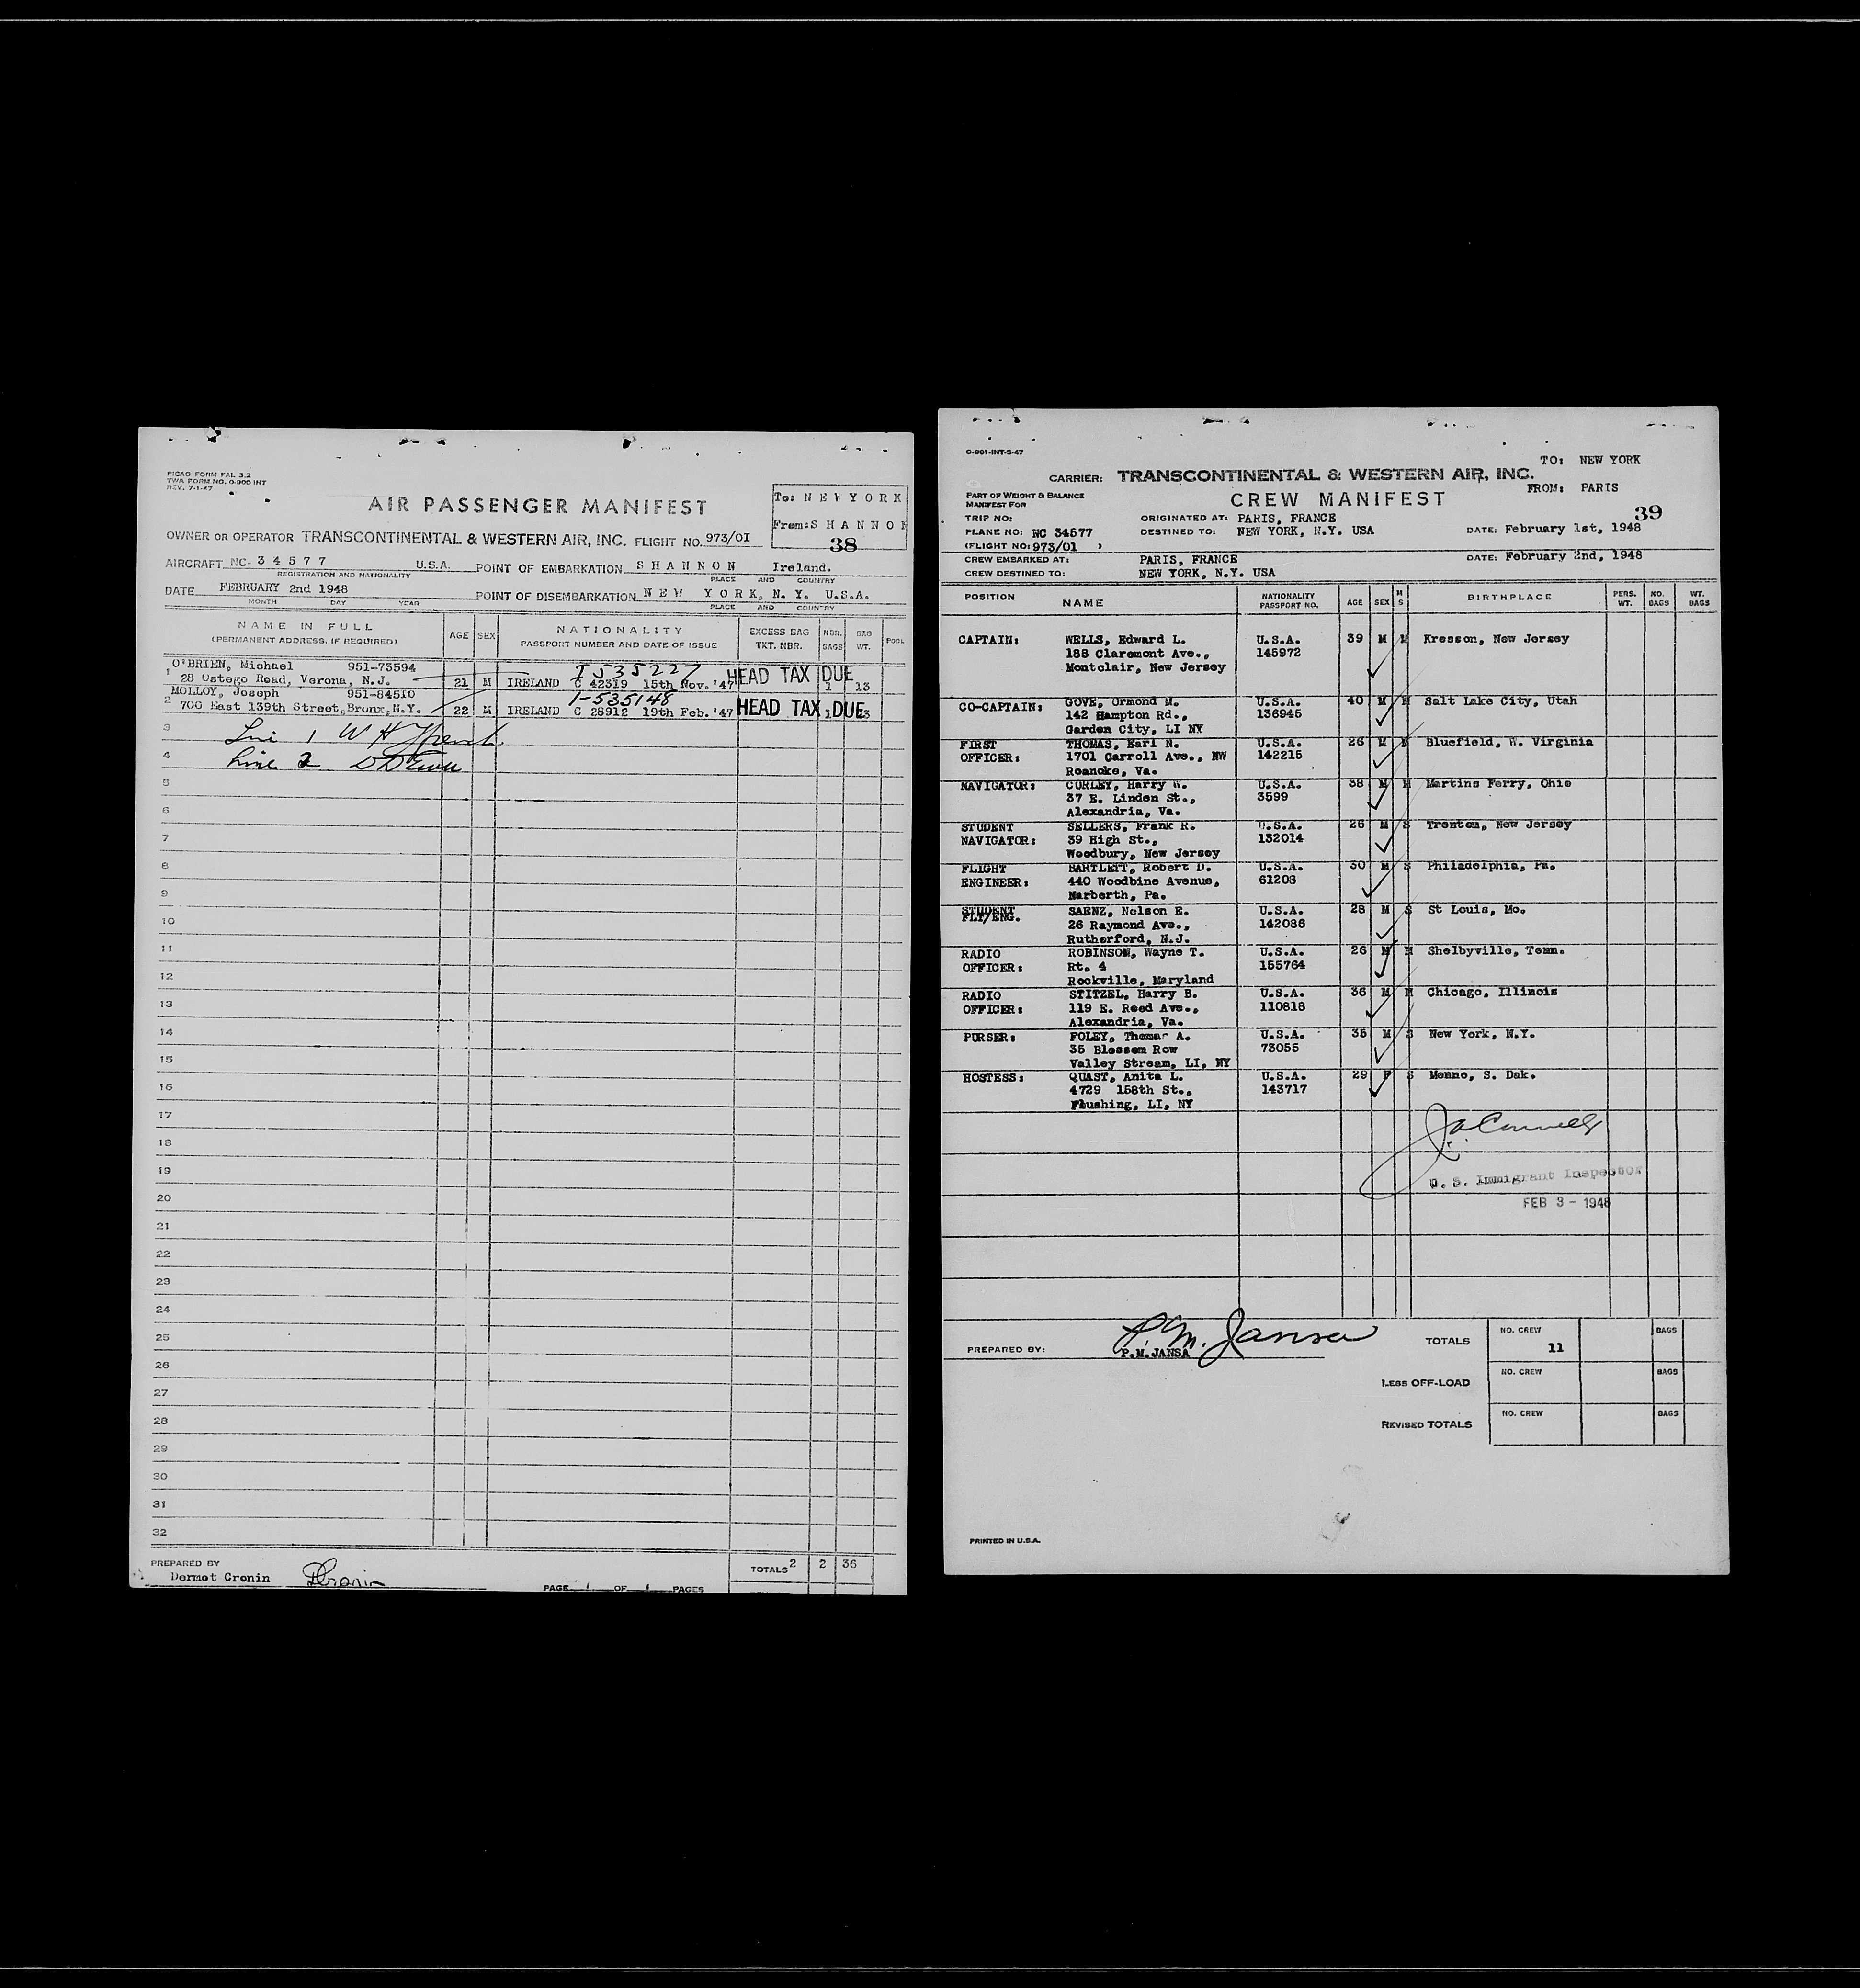 PICAO FORM FAL 3.2
TWA FORM NO. O-900 INT
REV. 7-1-47
AIR PASSENGER MANIFEST
To: NEW YORK
From: SHANNON
38
OWNER OR OPERATOR TRANSCONTINENTAL & WESTERN AIR, INC. FLIGHT NO. 973/01
AIRCRAFT NC- 34577 U.S.A. POINT OF EMBARKATION SHANNON Ireland.
REGISTRATION AND NATIONALITY PLACE AND COUNTRY
DATE FEBRUARY 2nd 1948 POINT OF DISEMBARKATION NEW YORK, N.Y. U.S.A.
MONTH DAY YEAR PLACE AND COUNTRY
NAME IN FULL AGE SEX NATIONALITY EXCESS BAG NBR. BAG POOL
(PERMANENT ADDRESS, IF REQUIRED) PASSPORT NUMBER AND DATE OF ISSUE TKT. NBR. BAGS WT.
O'BRIEN, Michael 951-73594 I535227 HEAD TAX DUE
1 28 Ostego Road, Verona, N.J. 21 M IRELAND C 42319 15th Nov. '47 1 13
MOLLOY, Joseph 951-84510 I-535148
2 700 East 139th Street, Bronx, N.Y. 22 M IRELAND C 28912 19th Feb. '47 HEAD TAX DUE 1 23
3 Line 1 W H
4 Line 2
5
6
7
8
9
10
11
12
13
14
15
16
17
18
19
20
21
22
23
24
25
26
27
28
29
30
31
32
PREPARED BY TOTALS 2 2 36
Dermot Cronin DCronin
PAGE 1 OF 1 PAGES
O-901-INT-5-47
TO: NEW YORK
CARRIER: TRANSCONTINENTAL & WESTERN AIR, INC.
FROM: PARIS
PART OF WEIGHT & BALANCE
MANIFEST FOR
CREW MANIFEST
39
TRIP NO: ORIGINATED AT: PARIS, FRANCE DATE: February 1st, 1948
PLANE NO: NC 34577 DESTINED TO: NEW YORK, N.Y. USA
(FLIGHT NO: 973/01 )
CREW EMBARKED AT: PARIS, FRANCE DATE: February 2nd, 1948
CREW DESTINED TO: NEW YORK, N.Y. USA
POSITION NAME NATIONALITY PASSPORT NO. AGE SEX M S BIRTHPLACE PERS. WT. NO. BAGS WT. BAGS
CAPTAIN: WELLS, Edward L. U.S.A. 39 M M Kresson, New Jersey
188 Claremont Ave., 145972
Montclair, New Jersey
CO-CAPTAIN: GOVE, Ormond M. U.S.A. 40 M M Salt Lake City, Utah
142 Hampton Rd., 136945
Garden City, LI NY
FIRST THOMAS, Earl N. U.S.A. 26 M M Bluefield, W. Virginia
OFFICER: 1701 Carroll Ave., NW 142215
Roanoke, Va.
NAVIGATOR: CURLEY, Harry W. U.S.A. 38 M M Martins Ferry, Ohio
37 E. Linden St., 3599
Alexandria, Va.
STUDENT SELLERS, Frank R. U.S.A. 26 M S Trenton, New Jersey
NAVIGATOR: 39 High St., 132014
Woodbury, New Jersey
FLIGHT BARTLETT, Robert D. U.S.A. 30 M S Philadelphia, Pa.
ENGINEER: 440 Woodbine Avenue, 61208
Narberth, Pa.
STUDENT SAENZ, Nelson E. U.S.A. 28 M S St Louis, Mo.
FLT/ENG. 26 Raymond Ave., 142086
Rutherford, N.J.
RADIO ROBINSON, Wayne T. U.S.A. 26 M M Shelbyville, Tenn.
OFFICER: Rt. 4 155764
Rockville, Maryland
RADIO STITZEL, Harry B. U.S.A. 36 M M Chicago, Illinois
OFFICER: 119 E. Reed Ave., 110818
Alexandria, Va.
PURSER: FOLEY, Thomas A. U.S.A. 35 M S New York, N.Y.
35 Blossom Row 73055
Valley Stream, LI, NY
HOSTESS: QUAST, Anita L. U.S.A. 29 F S Menno, S. Dak.
4729 158th St., 143717
Flushing, LI, NY
U. S. Immigrant Inspector
FEB 3 - 1948
P.M. Jansa
PREPARED BY: P.M. JANSA TOTALS NO. CREW 11 BAGS
LESS OFF-LOAD NO. CREW BAGS
REVISED TOTALS NO. CREW BAGS
PRINTED IN U.S.A.